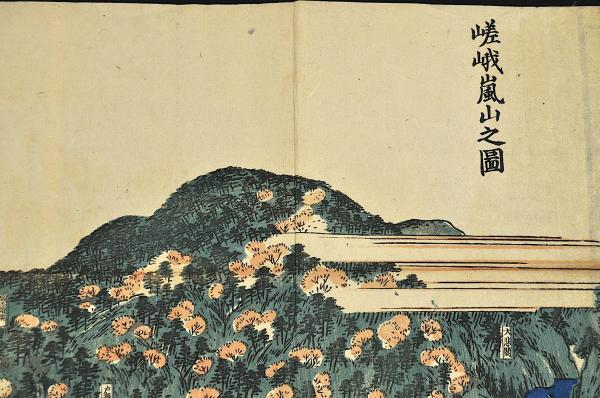 嵯峨嵐山之圖
大悲閣